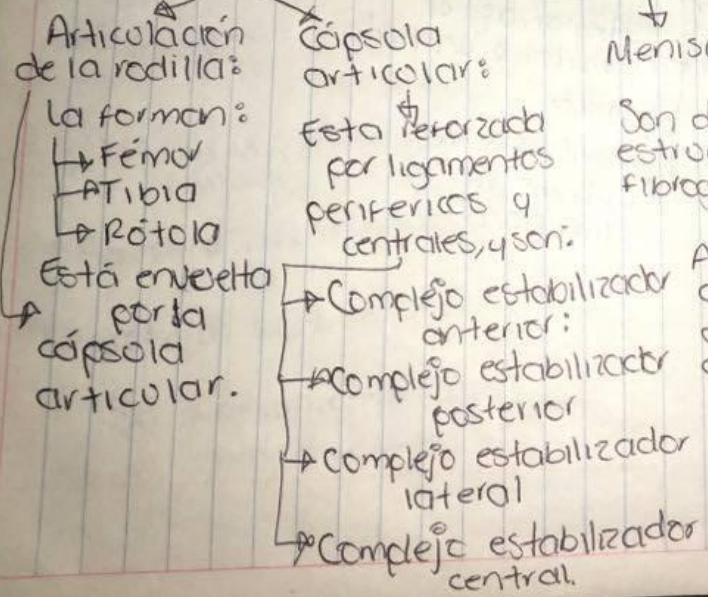 Articulación
de la rodilla:
La forman:
Fémor
Tibia
Rótola
Está envuelta
por la
cápsola
articolar.
Cápsola
articolar:
Esta reforzada
por ligamentos
perifericos y
centrales, y son:
Complejo estabilizador
anterior:
Complejo estabilizador
posterior
Complejo estabilizador
lateral
Complejo estabilizador
central.
Son